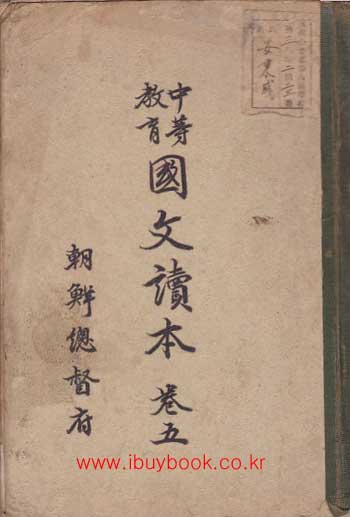 中等
教育
國文讀本 卷五
朝鮮總督府
www.ibuybook.co.kr